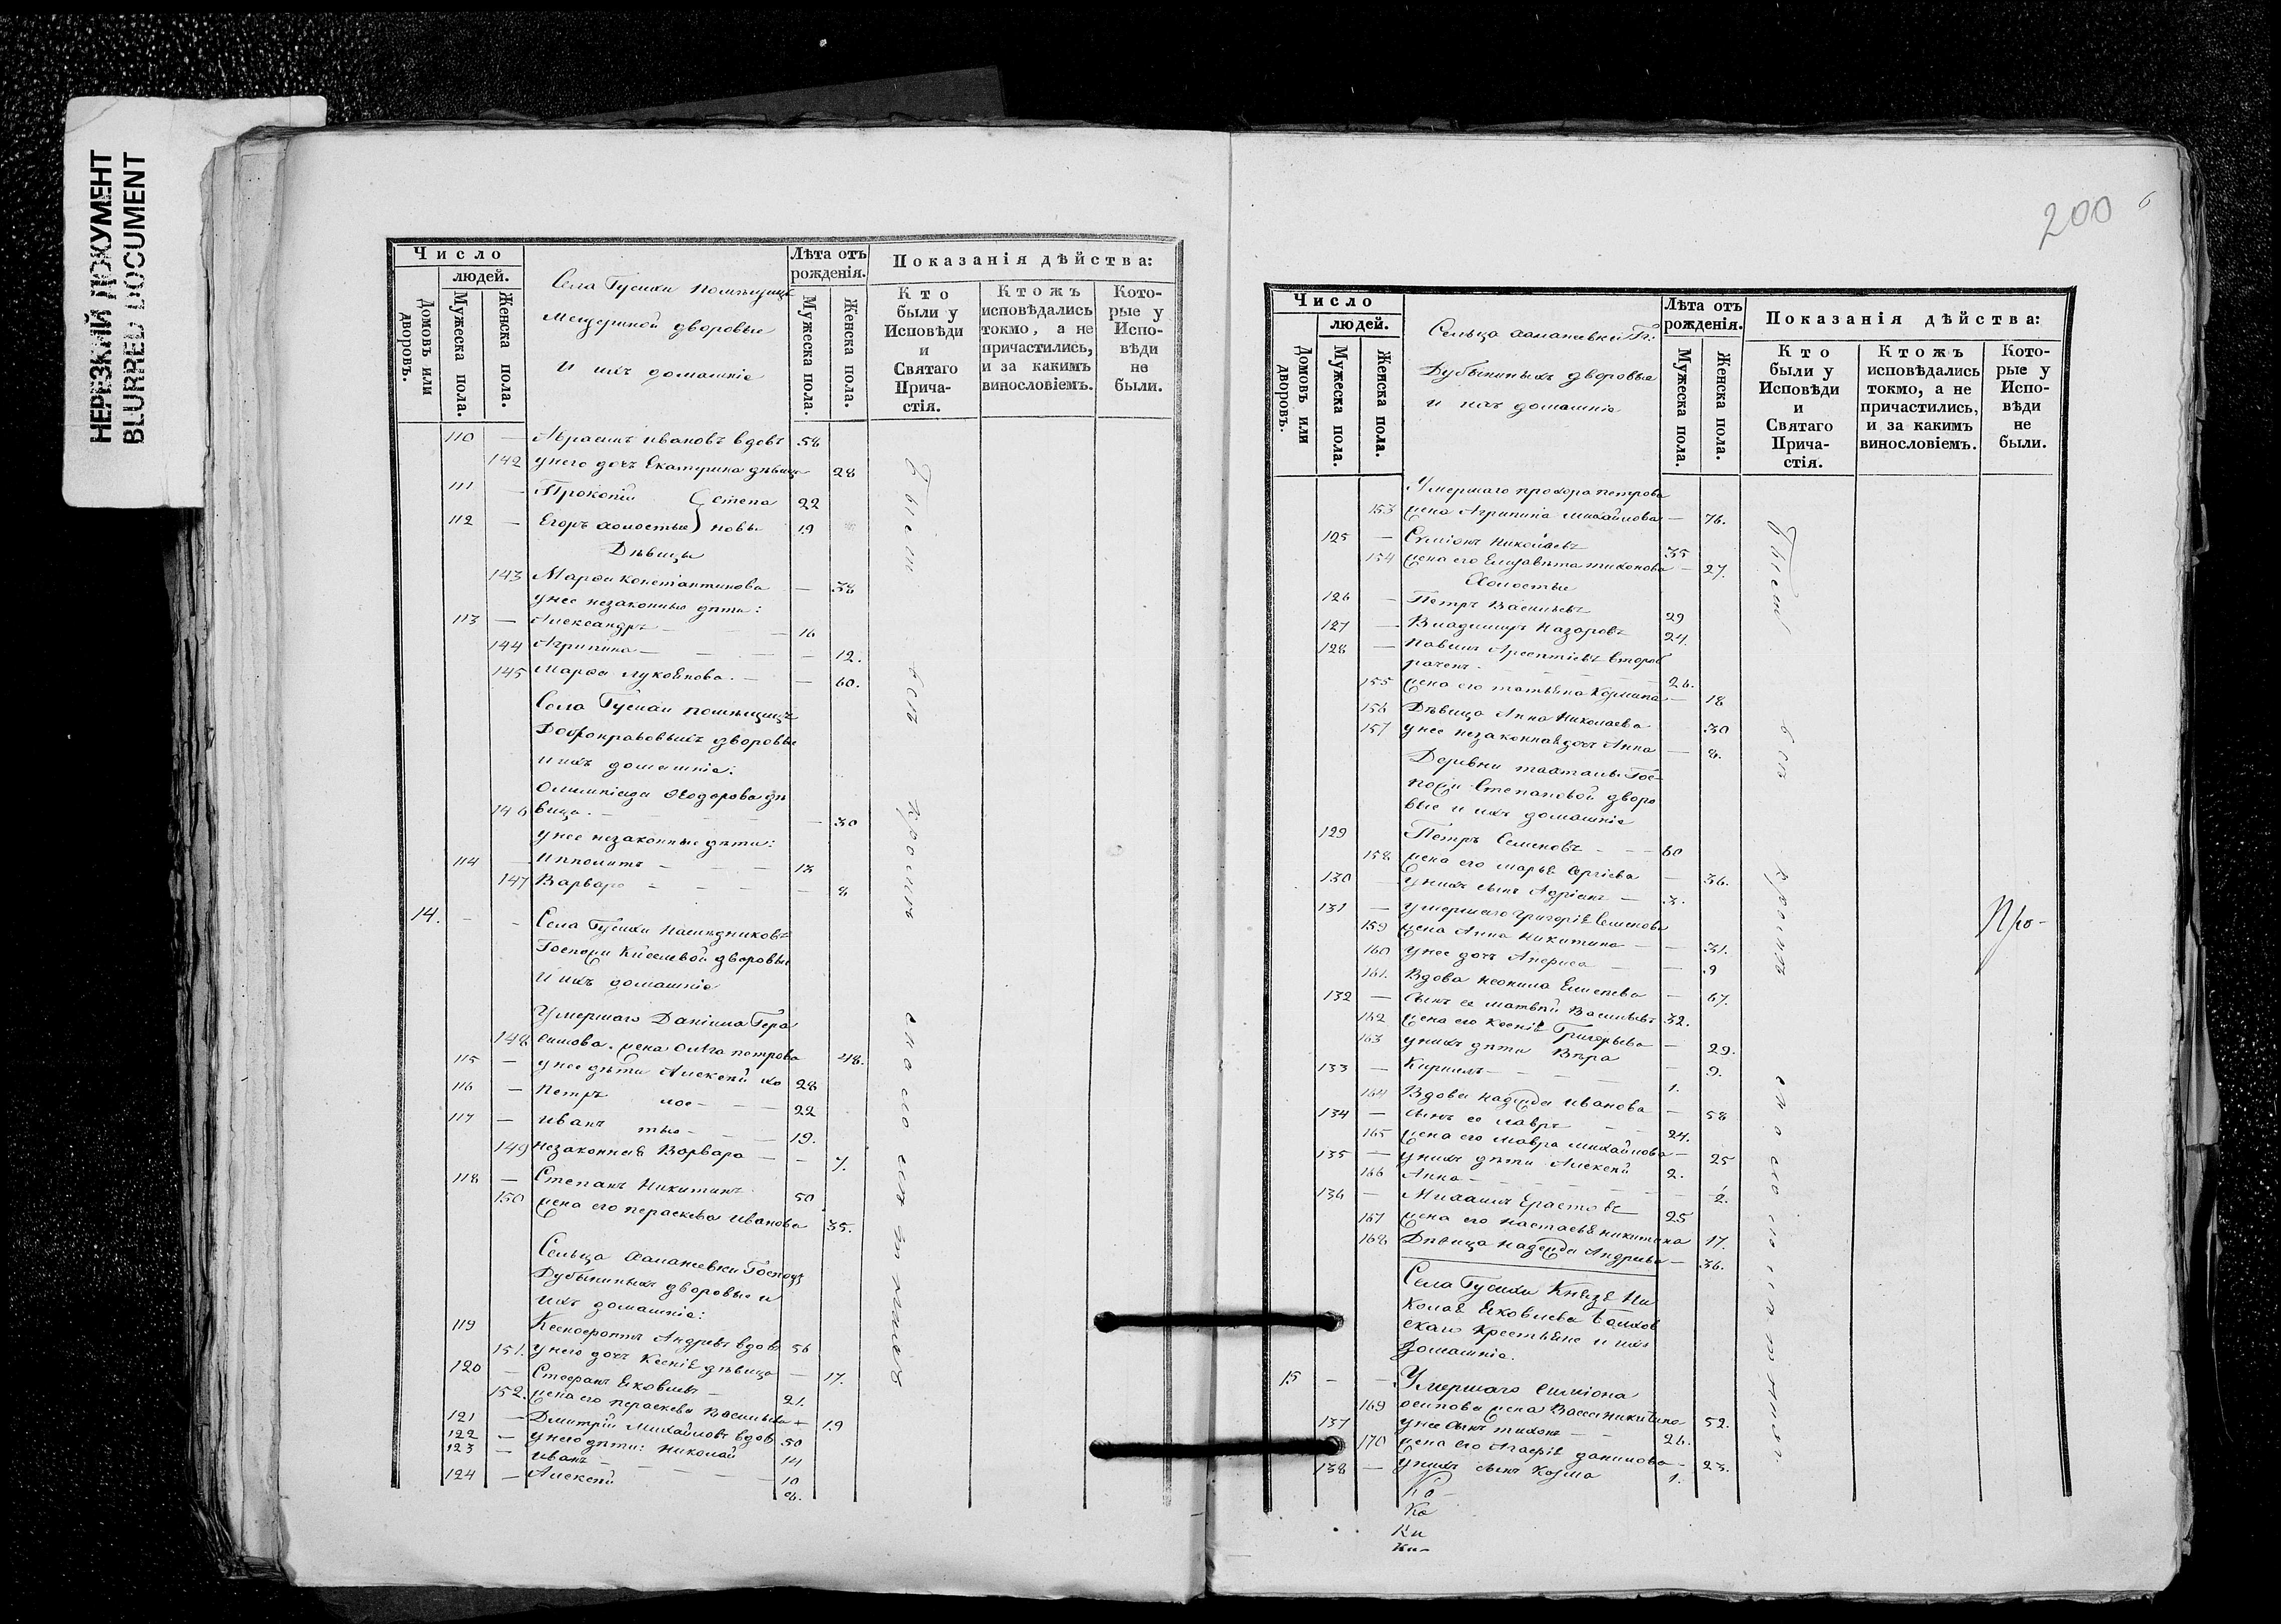 НЕРЕЗКИЙ ДОКУМЕНТ
BLURRED DOCUMENT
Число
людей.
Домовъ или дворовъ.
Мужеска пола.
Женска пола.
Села Гусихи помѣщицы
Мещериной дворовые
и ихъ домашніе
Лѣта отъ рожденія.
Мужеска пола.
Женска пола.
Показанія дѣйства:
Кто были у Исповѣди и Святаго Прича-стія.
Ктожъ исповѣдались токмо, а не причастились, и за какимъ винословіемъ.
Кото-рые у Испо-вѣди не были.
110 — Абрамъ Ивановъ вдовъ 58
142 у него дочь Екатерина дѣвица 28
111 — Прокопій Степа 22
112 — Егоръ холостые новы 19
Дѣвицы
143 Марѳа Константинова — 38
у нее незаконные дѣти:
113 — Александръ — 16
144 Агрипина — 12.
145 Марѳа Лукоянова. — 60.
Села Гусихи помѣщицъ
дворовые
и ихъ домашніе:
Олимпіада Ѳеодорова дѣ
146 вица. — 30
у нее незаконные дѣти:
114 — Ипполитъ — 13
147 Варвара — 8
14. — — Села Гусихи наслѣдниковъ
Госпожи Киселевой дворовые
и ихъ домашніе
Умершаго Даніила Гера
148 симова. жена Ольга Петрова 48.
115 — у нее дѣти Алексѣй хо 28
116 — Петръ лос — 22
117 — Иванъ тые — 19.
149 незаконная Варвара — 7.
118 — Степанъ Никитинъ 50
150 жена его Пераскева Иванова 35.
Сельца Халанеевки Господъ
Дубыниныхъ дворовые и
ихъ домашніе:
119 Ксенофонтъ Андреевъ вдовъ 56
151. у него дочь Ксенія дѣвица — 17.
120 — Стефанъ Яковлевъ — 21.
152. жена его Пераскева Васильева 19
121 — Дмитрій Михайловъ вдов 50
122 — у него дѣти: Николай 14
123 — Иванъ — 10
124 — Алексѣй 8.
Были всѣ кромѣ малолѣтнихъ
200
6
Число
людей.
Домовъ или дворовъ.
Мужеска пола.
Женска пола.
Сельца Халанеевки Гг:
Дубыниныхъ дворовые
и ихъ домашніе
Лѣта отъ рожденія.
Мужеска пола.
Женска пола.
Показанія дѣйства:
Кто были у Исповѣди и Святаго Прича-стія.
Ктожъ исповѣдались токмо, а не причастились, и за какимъ винословіемъ.
Кото-рые у Испо-вѣди не были.
Умершаго Прохора Петрова
153 жена Агрипина Михайлова — 76.
125 — Симіонъ Николаевъ 35
154 жена его Елизавета Тихонова — 27.
Холостые
126 — Петръ Васильевъ 29
127 — Владимиръ Назаровъ 24.
128 — Павелъ Арсентіевъ второб
рачен. 26.
155 жена его Татьяна Кузмина — 18
156 Дѣвица Анна Николаева 30
157 у нее незаконная дочь Анна — 8.
Деревни Гос-
пожи Степановой дворо
вые и ихъ домашніе
129 Петръ Семеновъ — 60
158 жена его Марья Сергіева — 36.
130 — у нихъ сынъ Адріанъ — 3.
131 — умершаго Григорія Семенова
159 жена Анна Никитина — 31.
160 у нее дочь Анфиса — 9
161. Вдова Неонила Елисеева — 67.
132 — Сынъ ее Матвѣй Васильевъ 32.
162 жена его Ксенія Григорьева — 29.
163 у нихъ дѣти Вѣра — 9.
133 — Кирилъ — 1.
164 Вдова Надежда Иванова — 58
134 — сынъ ее Лавръ 24.
165 жена его Мавра Михайлова — 25
135 — у нихъ дѣти Алексѣй 2.
166 Анна — 2.
136 — Михаилъ Ерастовъ 25
167 жена его Настасья Никитина 17.
168 Дѣвица Надежда Андреева — 36.
Села Гусихи Князя Ни
колая Яковлева Голхов
скаго крестьяне и ихъ
домашніе.
15 — — Умершаго Симіона
169 Осипова жена Васса Никитина 52.
137 у нее сынъ Тихонъ — 26.
170 жена его Агафія Данилова — 23.
138 — у нихъ сынъ Козма 1.
Ко-
Ко
Ки
Ки-
Были всѣ кромѣ малолѣтнихъ
Про-